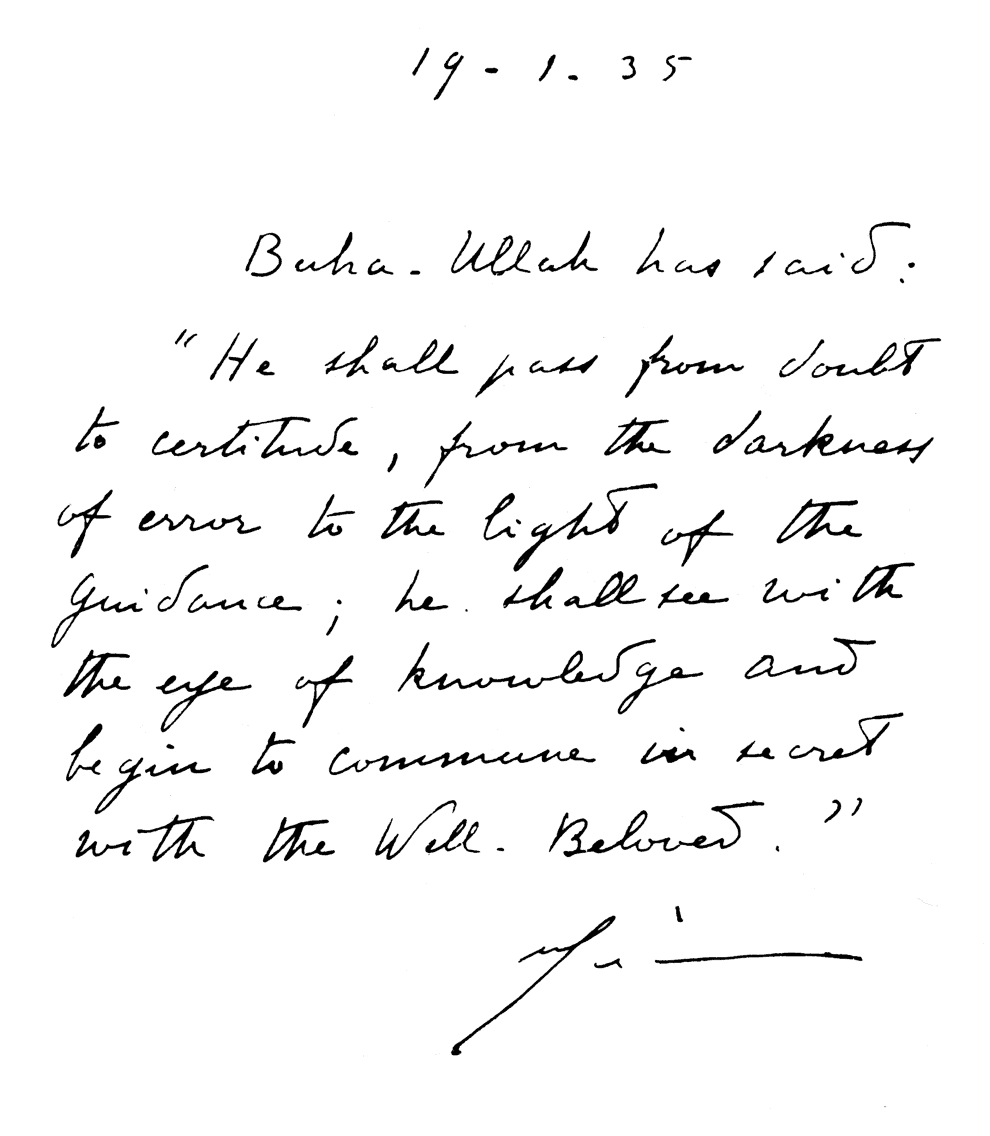 19-1.35
Baha-Ullah has said:
"He shall pass from doubt
to certitude, from the darkness
of error to the light of the
guidance; he shall see with
the eye of knowledge and
begin to commune in secret
with the Well-Beloved."